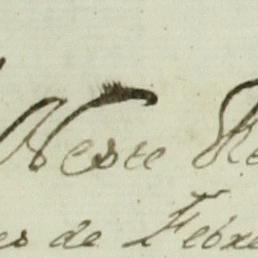 Neste Re
es de Febre